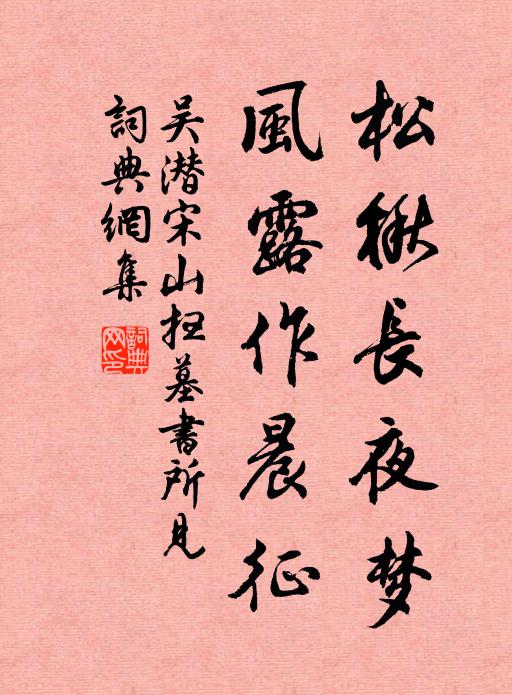 松楸長夜梦
風露作晨征
吴潜宋山扫墓書所見
詞典網集
詞典网印